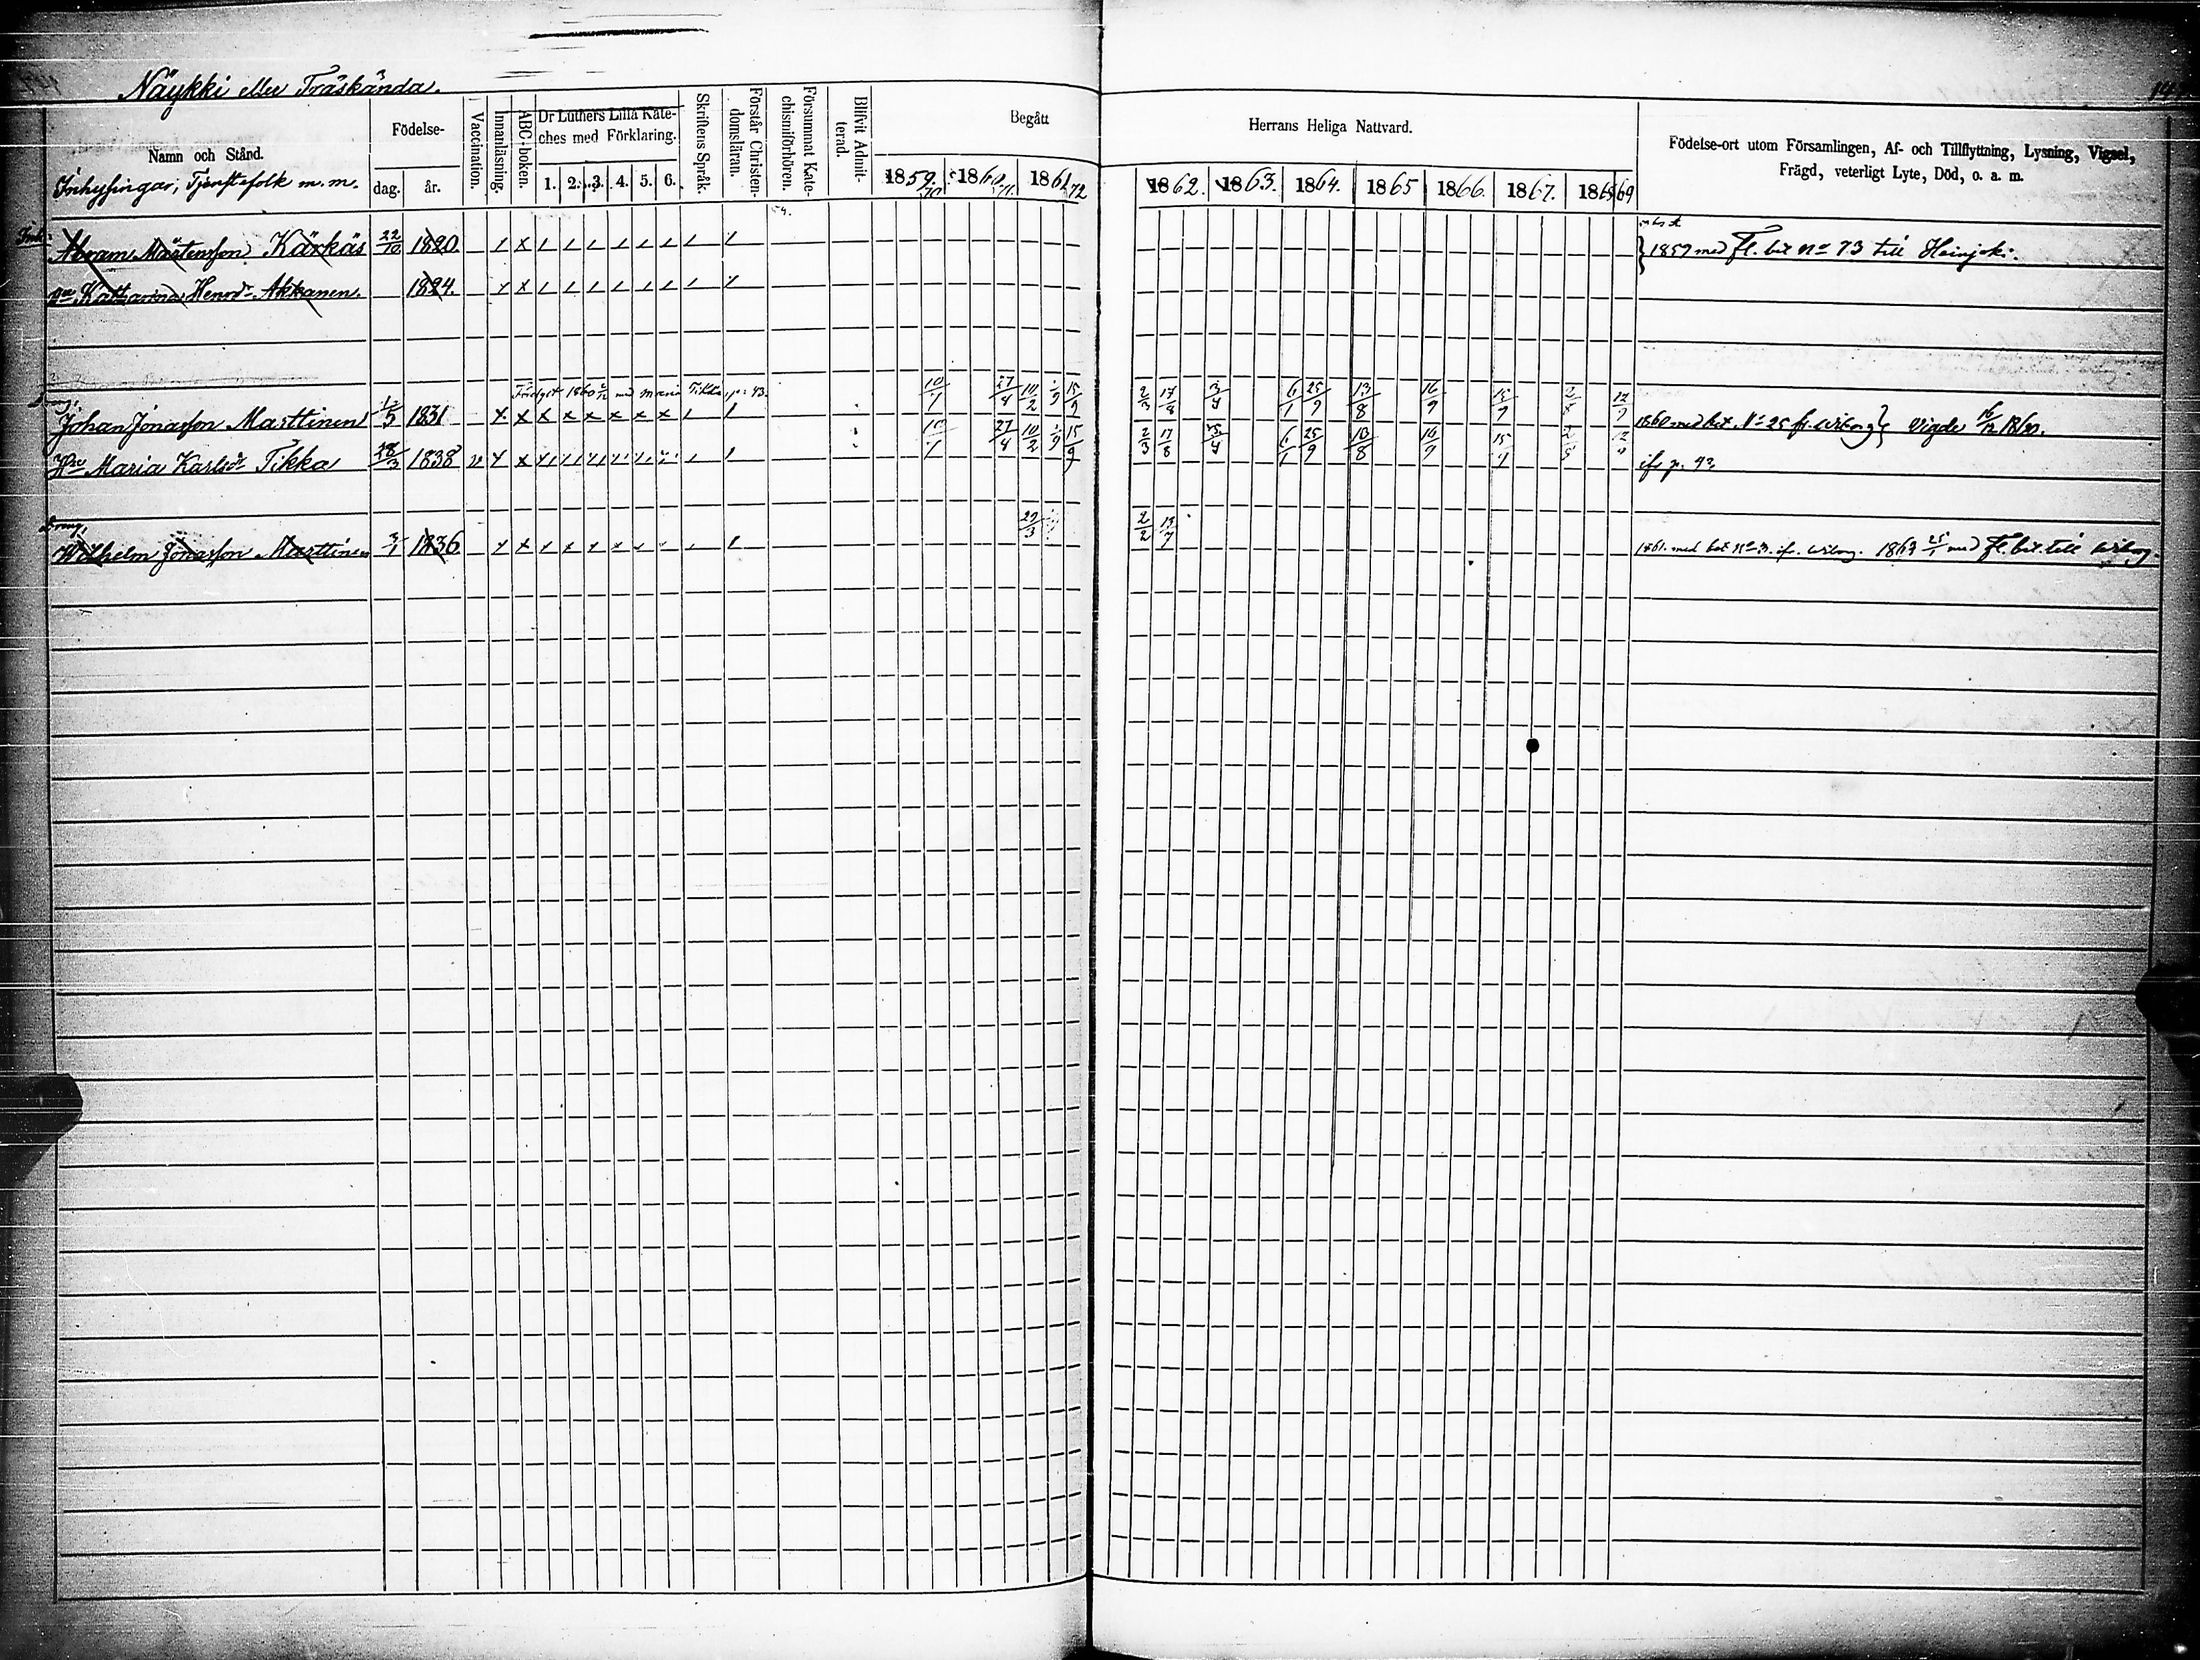 Näykki eller Träskända.
Namn och Stånd.
Inhysingar, Tjenstefolk m. m.
Födelse-
dag. år.
Vaccination.
Innanläsning.
ABC-boken.
Dr Luthers Lilla Kate-
ches med Förklaring.
1. 2. 3. 4. 5. 6.
Skriftens Språk.
Förstår Christen-
domsläran.
Försummat Kate-
chismiförhören.
Blifvit Admit-
terad.
Begått
1859. 70 1860. 71. 1861. 72
Herrans Heliga Nattvard.
1862. 1863. 1864. 1865 1866. 1867. 1868 69
Födelse-ort utom Församlingen, Af- och Tillflyttning, Lysning, Vigsel,
Frägd, veterligt Lyte, Död, o. a. m.
Inh:
Abram Mårtensson Kärkäs 22/10 1820
1859 med fl. bet No 73 till Heinjoki.
Katharina Henrsdr Akkanen. 1824.
Drang,
1860 med Maria Tikka, p: 43.
Johan Jonasson Marttinen 1831 10/1 27/4 10/2 15/9 2/3 17/8 6/1 25/9 13/8 16/9
1860 med bet. No 25 fr. Wiborg } Vigde 16/12 1860.
Hu Maria Karlsdr Tikka 28/3 1838 v 10/1 27/4 10/2 15/9 2/3 17/8 6/1 25/9 13/8 16/9
ifr p. 43
Drang,
Wilhelm Jonasson Marttinen 3/1 1836 2/2 13/7
1861. med bet No 3. ifr. Wiborg. 1863 25/1 med fl. bet. till Wiborg.